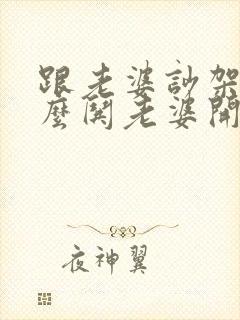 跟老婆訬架
麼鬨老婆開
夜神翼